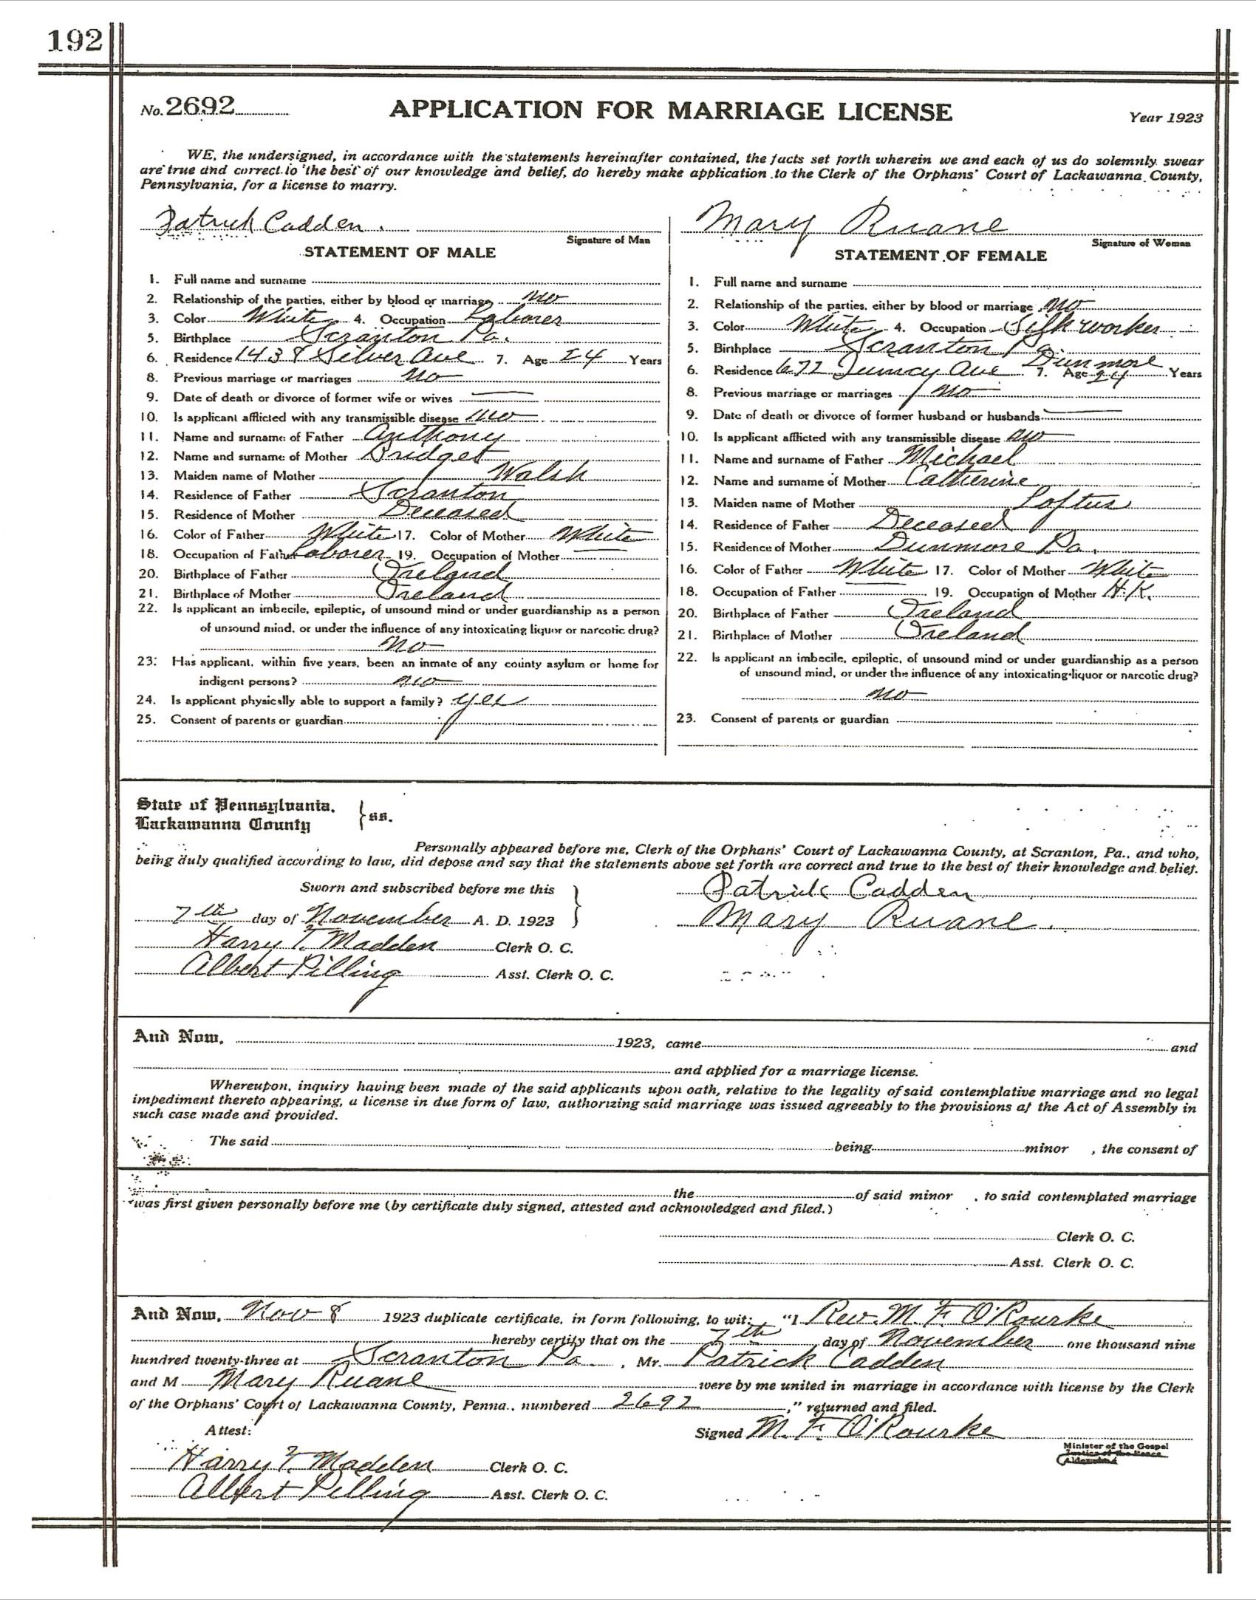 192
No. 2692 APPLICATION FOR MARRIAGE LICENSE Year 1923
WE, the undersigned, in accordance with the statements hereinafter contained, the facts set forth wherein we and each of us do solemnly swear
are true and correct to the best of our knowledge and belief, do hereby make application to the Clerk of the Orphans' Court of Lackawanna County,
Pennsylvania, for a license to marry.
Patrick Cadden.
Signature of Man
STATEMENT OF MALE
1. Full name and surname
2. Relationship of the parties, either by blood or marriage no
3. Color White 4. Occupation Laborer
5. Birthplace Scranton Pa.
6. Residence 1438 Silver Ave 7. Age 24 Years
8. Previous marriage or marriages no
9. Date of death or divorce of former wife or wives —
10. Is applicant afflicted with any transmissible disease no
11. Name and surname of Father Anthony
12. Name and surname of Mother Bridget
13. Maiden name of Mother Walsh
14. Residence of Father Scranton
15. Residence of Mother Deceased
16. Color of Father White 17. Color of Mother White
18. Occupation of Father Laborer 19. Occupation of Mother —
20. Birthplace of Father Ireland
21. Birthplace of Mother Ireland
22. Is applicant an imbecile, epileptic, of unsound mind or under guardianship as a person
of unsound mind, or under the influence of any intoxicating liquor or narcotic drug?
no
23. Has applicant, within five years, been an inmate of any county asylum or home for
indigent persons? no
24. Is applicant physically able to support a family? yes
25. Consent of parents or guardian
Mary Ruane
Signature of Woman
STATEMENT OF FEMALE
1. Full name and surname
2. Relationship of the parties, either by blood or marriage no
3. Color White 4. Occupation Silk worker
5. Birthplace Scranton Pa
6. Residence 672 Quincy Ave Dunmore 7. Age 24 Years
8. Previous marriage or marriages no
9. Date of death or divorce of former husband or husbands —
10. Is applicant afflicted with any transmissible disease no
11. Name and surname of Father Michael
12. Name and surname of Mother Catherine
13. Maiden name of Mother Loftus
14. Residence of Father Deceased
15. Residence of Mother Dunmore Pa.
16. Color of Father White 17. Color of Mother White
18. Occupation of Father — 19. Occupation of Mother H.K.
20. Birthplace of Father Ireland
21. Birthplace of Mother Ireland
22. Is applicant an imbecile, epileptic, of unsound mind or under guardianship as a person
of unsound mind, or under the influence of any intoxicating liquor or narcotic drug?
no
23. Consent of parents or guardian
State of Pennsylvania,
Lackawanna County } ss.
Personally appeared before me, Clerk of the Orphans' Court of Lackawanna County, at Scranton, Pa., and who,
being duly qualified according to law, did depose and say that the statements above set forth are correct and true to the best of their knowledge and belief.
Sworn and subscribed before me this Patrick Cadden
7th day of November A. D. 1923 Mary Ruane.
Harry T. Madden Clerk O. C.
Albert Pilling Asst. Clerk O. C.
And Now, 1923, came and
and applied for a marriage license.
Whereupon, inquiry having been made of the said applicants upon oath, relative to the legality of said contemplative marriage and no legal
impediment thereto appearing, a license in due form of law, authorizing said marriage was issued agreeably to the provisions of the Act of Assembly in
such case made and provided.
The said being minor , the consent of
the of said minor , to said contemplated marriage
was first given personally before me (by certificate duly signed, attested and acknowledged and filed.)
Clerk O. C.
Asst. Clerk O. C.
And Now, Nov 8 1923 duplicate certificate, in form following, to wit: "I Rev. M. F. O'Rourke
hereby certify that on the 7th day of November one thousand nine
hundred twenty-three at Scranton Pa. , Mr. Patrick Cadden
and M Mary Ruane were by me united in marriage in accordance with license by the Clerk
of the Orphans' Court of Lackawanna County, Penna., numbered 2692 ," returned and filed.
Attest: Signed M. F. O'Rourke
Minister of the Gospel
Justice of the Peace
Alderman
Harry T. Madden Clerk O. C.
Albert Pilling Asst. Clerk O. C.